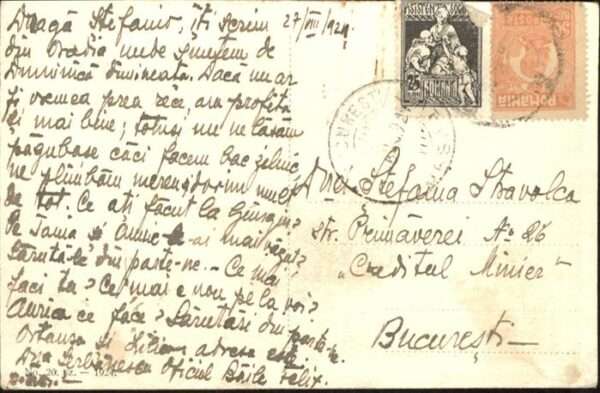 Dragă Stefanio, îți scriu 27/VIII/1924
din Oradia unde suntem de
Duminică dimineata. Dacă n'ar
fi vremea prea rece, am profita
și mai bine; totuși nu ne lăsăm
păgubașe căci facem bae zilnic
ne plimbăm mereu dormim mult
de tot. Ce ați făcut la
Pe Tanta și Annie le-ai mai văzut?
Sărută-le din parte-ne. - Ce mai
faci tu? Ce mai e nou pe la voi?
Aurica ce face? Sărutări din parte-ne.
Ortansa și adresa este
D-na Serbănescu Oficiul Băile Felix.
No. 20. - 1924.
ASISTENȚA SOCIALĂ
25
ROMANIA
D-rei Stefania Stravolca
str. Primăverei No 26
„Creditul Minier"
București